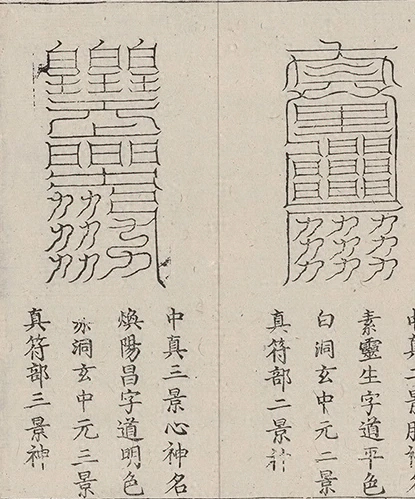 中真二景肺神名
素靈生字道平色
白洞玄中元二景
真符部二景神
中真三景心神名
煥陽昌字道明色
赤洞玄中元三景
真符部三景神